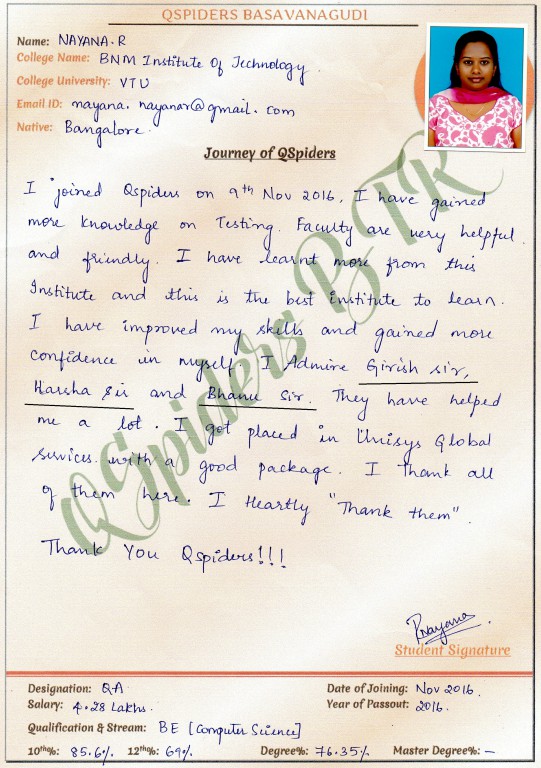 QSPIDERS BASAVANAGUDI
Name: NAYANA.R
College Name: BNM Institute Of Technology.
College University: VTU
Email ID: nayana.nayanar@gmail.com
Native: Bangalore.
Journey of QSpiders
I joined Qspiders on 9th Nov 2016. I have gained
more knowledge on Testing. Faculty are very helpful
and friendly. I have learnt more from this
Institute and this is the best institute to learn.
I have improved my skills and gained more
confidence in myself. I Admire Girish sir,
Harsha Sir and Bhanu Sir. They have helped
me a lot. I got placed in Unisys Global
Services with a good package. I Thank all
of them here. I Heartly "Thank them".
Thank You Qspiders!!!
QSpiders BTR
RNayana
Student Signature
Designation: QA
Date of Joining: Nov 2016.
Salary: 4.28 Lakhs.
Year of Passout: 2016.
Qualification & Stream: BE [Computer Science]
10th%: 85.6% 12th%: 69% Degree%: 76.35% Master Degree%: -